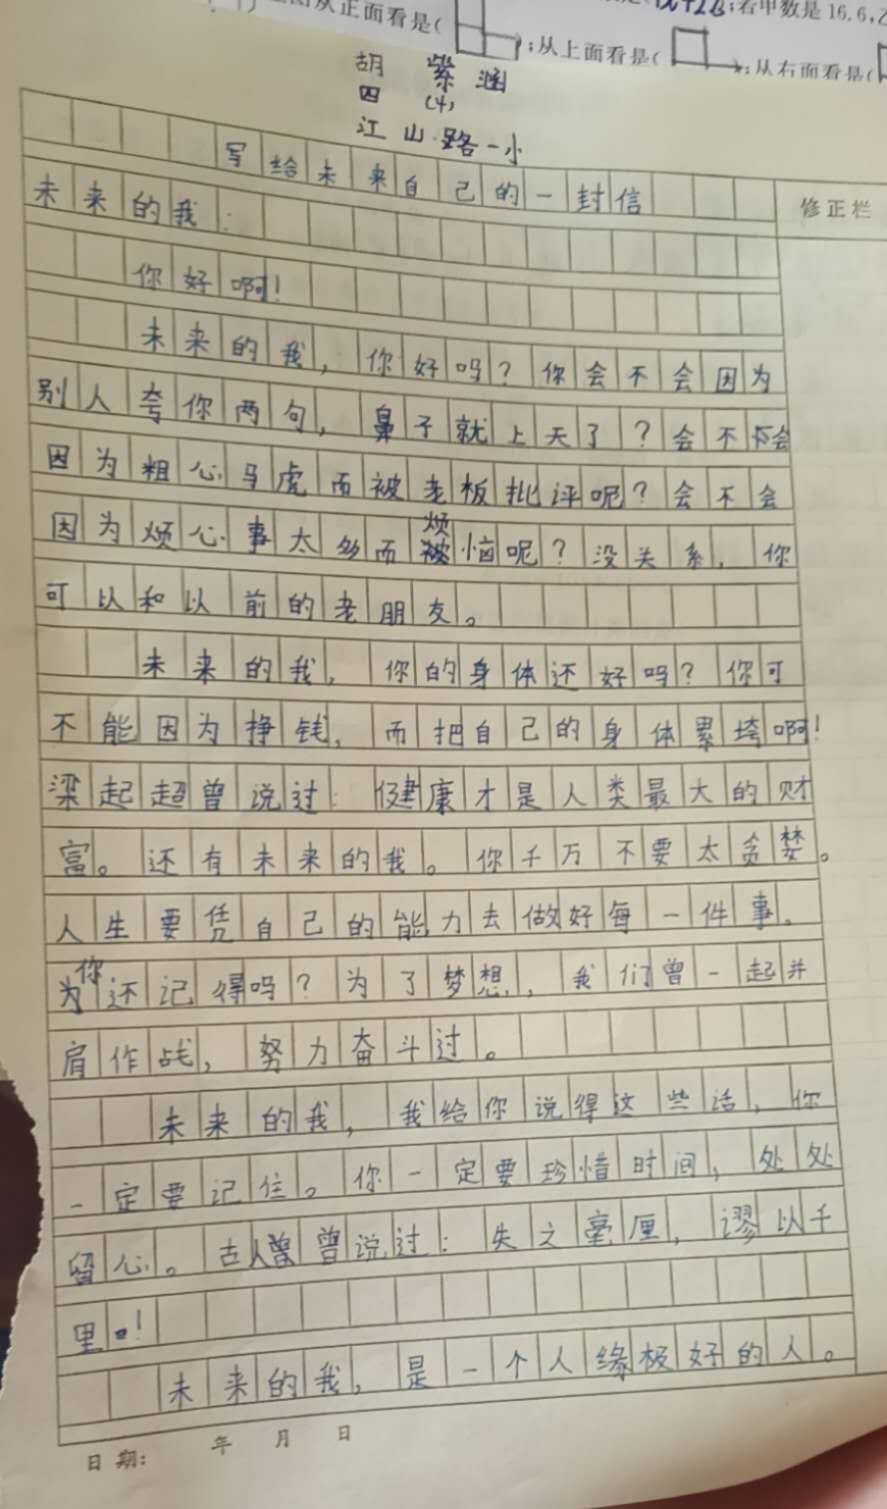 图从正面看是(
;从上面看是(
;从右面看是(
;若甲数是16.6,乙
胡紫涵
四(4)
江山路一小
写给未来自己的一封信
修正栏
未来的我:
你好啊!
未来的我,你好吗?你会不会因为
别人夸你两句,鼻子就上天了?会不会
因为粗心马虎而被老板批评呢?会不会
因为烦心事太多而烦恼呢?没关系,你
可以和以前的老朋友。
未来的我,你的身体还好吗?你可
不能因为挣钱,而把自己的身体累垮啊!
梁起超曾说过:健康才是人类最大的财
富。还有未来的我。你千万不要太贪婪。
人生要凭自己的能力去做好每一件事。
你还记得吗?为了梦想,我们曾一起并
肩作战,努力奋斗过。
未来的我,我给你说得这些话,你
一定要记住。你一定要珍惜时间,处处
留心。古人曾曾说过:失之毫厘,谬以千
里!
未来的我,是一个人缘极好的人。
日期: 年 月 日